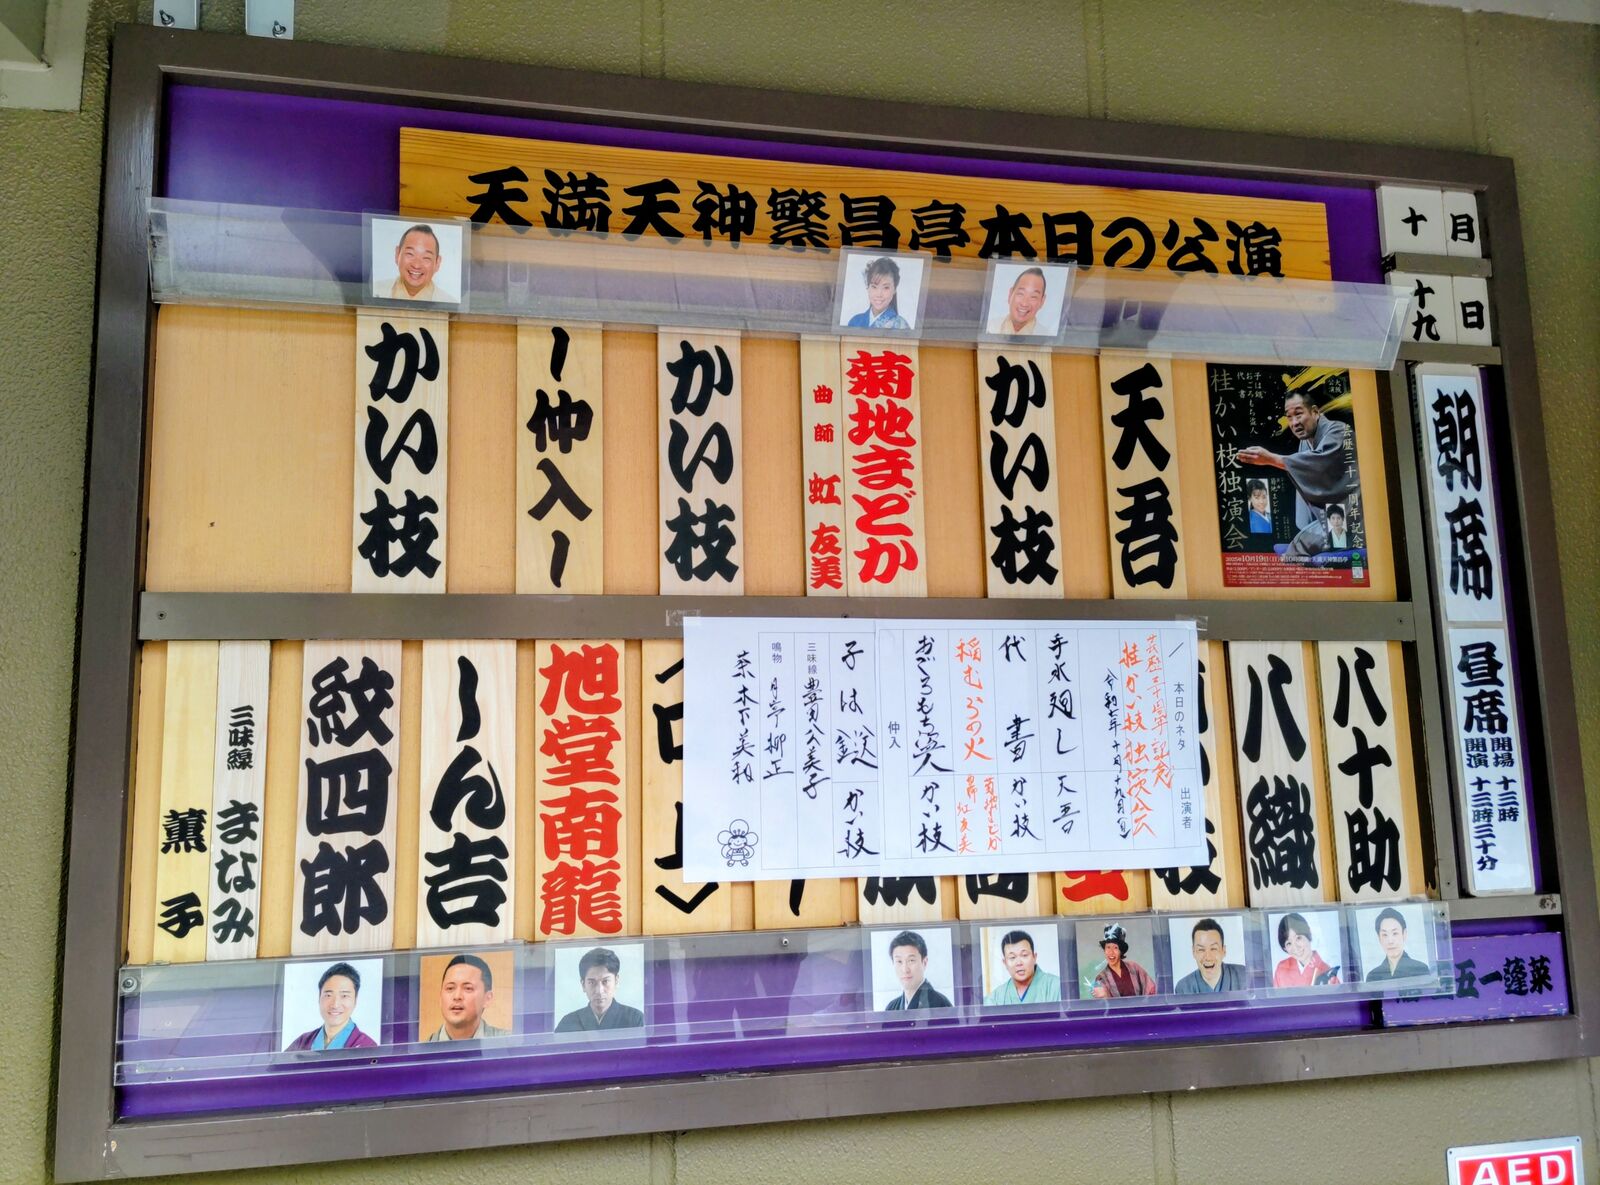 天満天神繁昌亭本日の公演
十月
十九日
朝席
天吾
かい枝
菊地まどか
曲師 虹友美
かい枝
〜仲入〜
かい枝
大阪公演
子は鎹
おごろもち盗人
代書
桂かい枝独演会
芸歴三十一周年記念
2025年10月19日(日)
昼席
開場 十三時
開演 十三時三十分
八十助
八織
旭堂南龍
ん吉
紋四郎
三味線 まなみ
薫子
本日のネタ
出演者
桂かい枝独演会
令和七年十月十九日(日)
手水廻し 天吾
代書 かい枝
稲むらの火 菊地まどか
曲師 虹友美
おごろもち盗人 かい枝
仲入
子は鎹 かい枝
三味線 豊田公美子
鳴物 月亭柳正
桒木下美和
五一蓬莱
AED